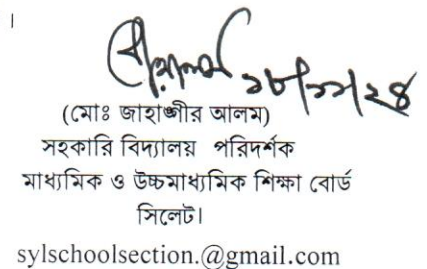 ।
১৮/১১/২৪
(মোঃ জাহাঙ্গীর আলম)
সহকারি বিদ্যালয় পরিদর্শক
মাধ্যমিক ও উচ্চমাধ্যমিক শিক্ষা বোর্ড
সিলেট।
sylschoolsection.@gmail.com